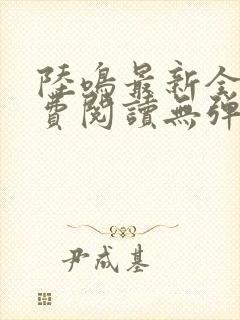 陸鳴最新全
費閱讀無彈
尹成基